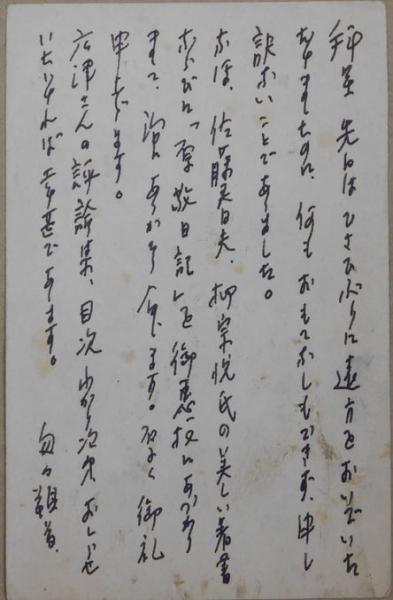 拝呈 先日はひさびさに遠方をおいでいた
だきましたのに、何もおもてなしもできず、申し
訳ないことでありました。
なほ、佐藤春夫、柳宗悦氏の美しい著書
ならびに「原敬日記」を御恵投にあづかり
まして、 ありがたう存じます。厚く御礼
申上げます。
唐津さんの評論集、目次わかり次第おしらせ
いただければ幸甚であります。
匆々頓首、